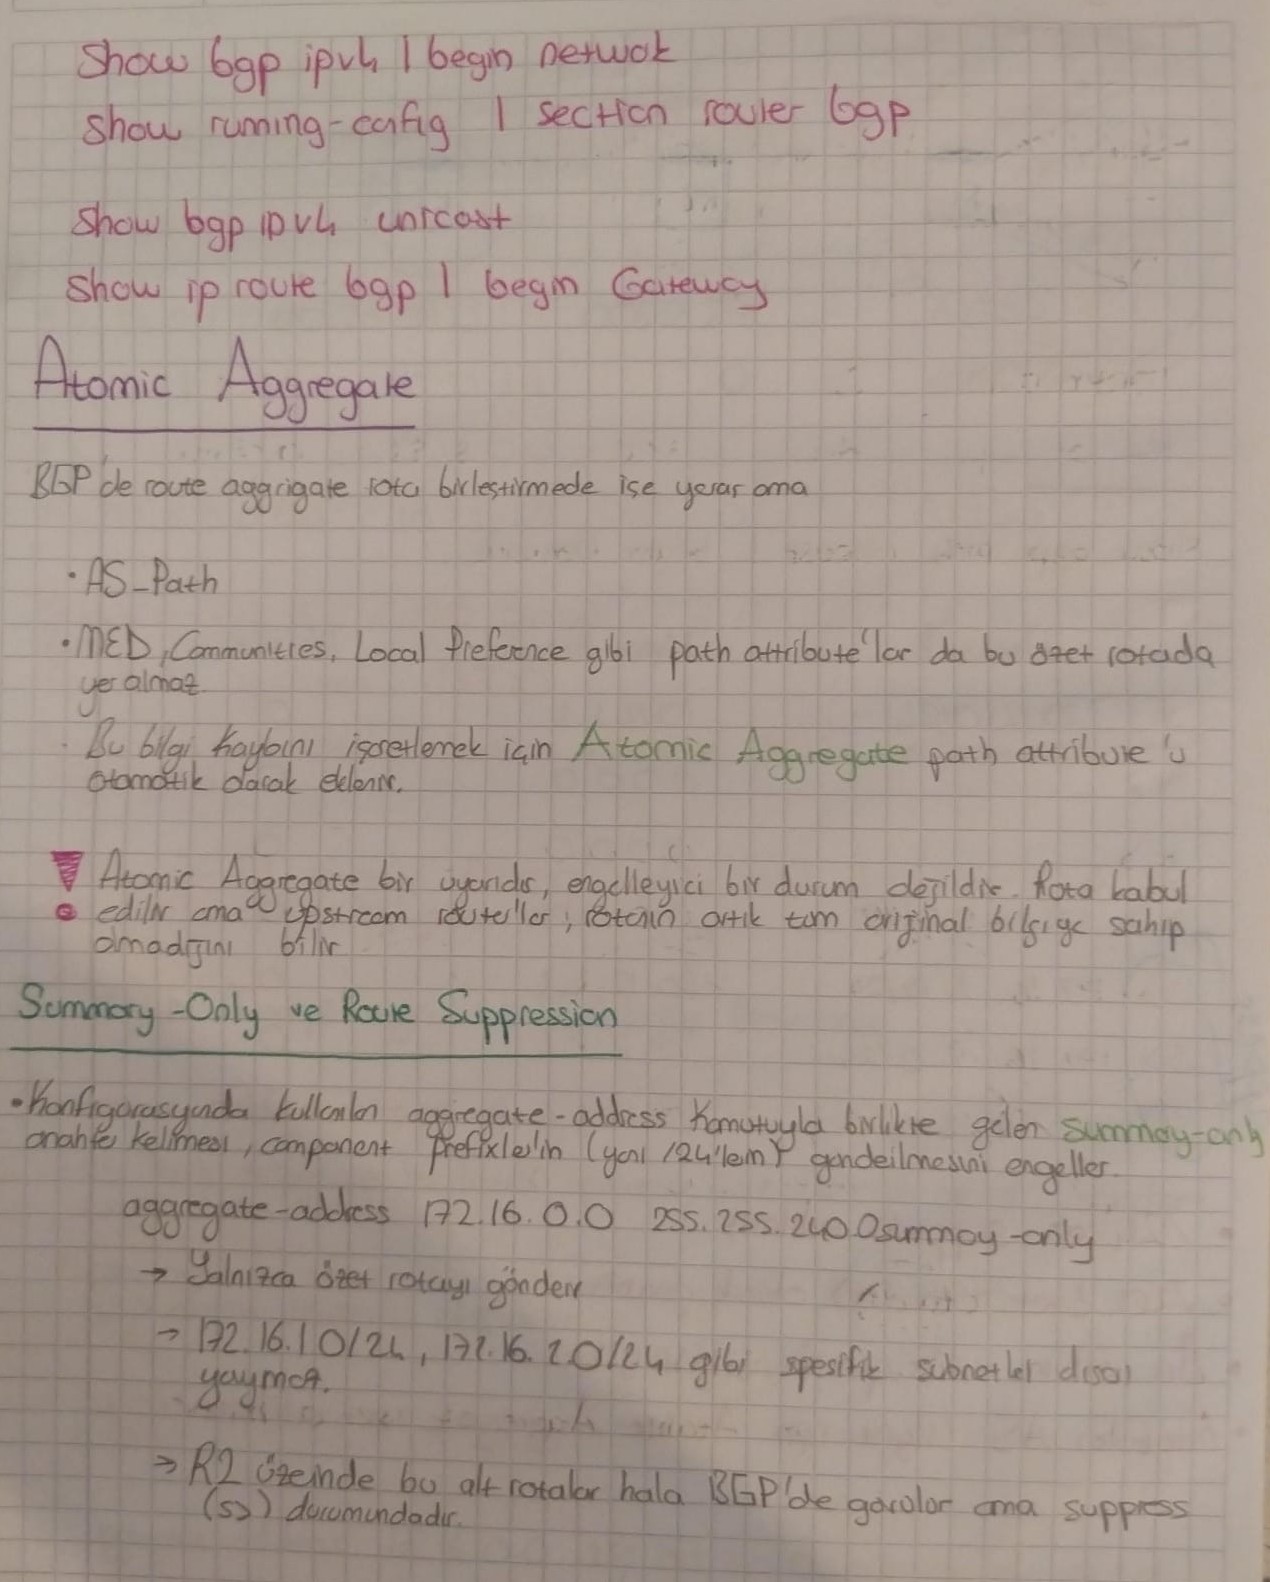 Show bgp ipv4 | begin netwok
Show running-config | section router bgp
Show bgp ipv4 unicast
Show ip route bgp | begin Gateway
Atomic Aggregate
BGP'de route aggrigate rota birleştirmede işe yarar ama
• AS_Path
• MED, Communities, Local Preference gibi path attribute'lar da bu özet rotada
yer almaz.
• Bu bilgi kaybını işaretlemek için Atomic Aggregate path attribute'u
otomatik olarak eklenir.
! Atomic Aggregate bir uyarıdır, engelleyici bir durum değildir. Rota kabul
edilir ama upstream router'lar, rotanın artık tam orijinal bilgiye sahip
olmadığını bilir
Summary-Only ve Route Suppression
• Konfigurasyonda kullanılan aggregate-address komutuyla birlikte gelen summary-only
anahtar kelimesi, component prefixlerin (yani /24'lerin) gönderilmesini engeller.
aggregate-address 172.16.0.0 255.255.240.0 summary-only
→ Yalnızca özet rotayı gönderir
→ 172.16.1.0/24, 172.16.2.0/24 gibi spesifik subnetleri dışarı
yaymaz.
→ R2 üzerinde bu alt rotalar hala BGP'de görülür ama suppress
(s>) durumundadır.